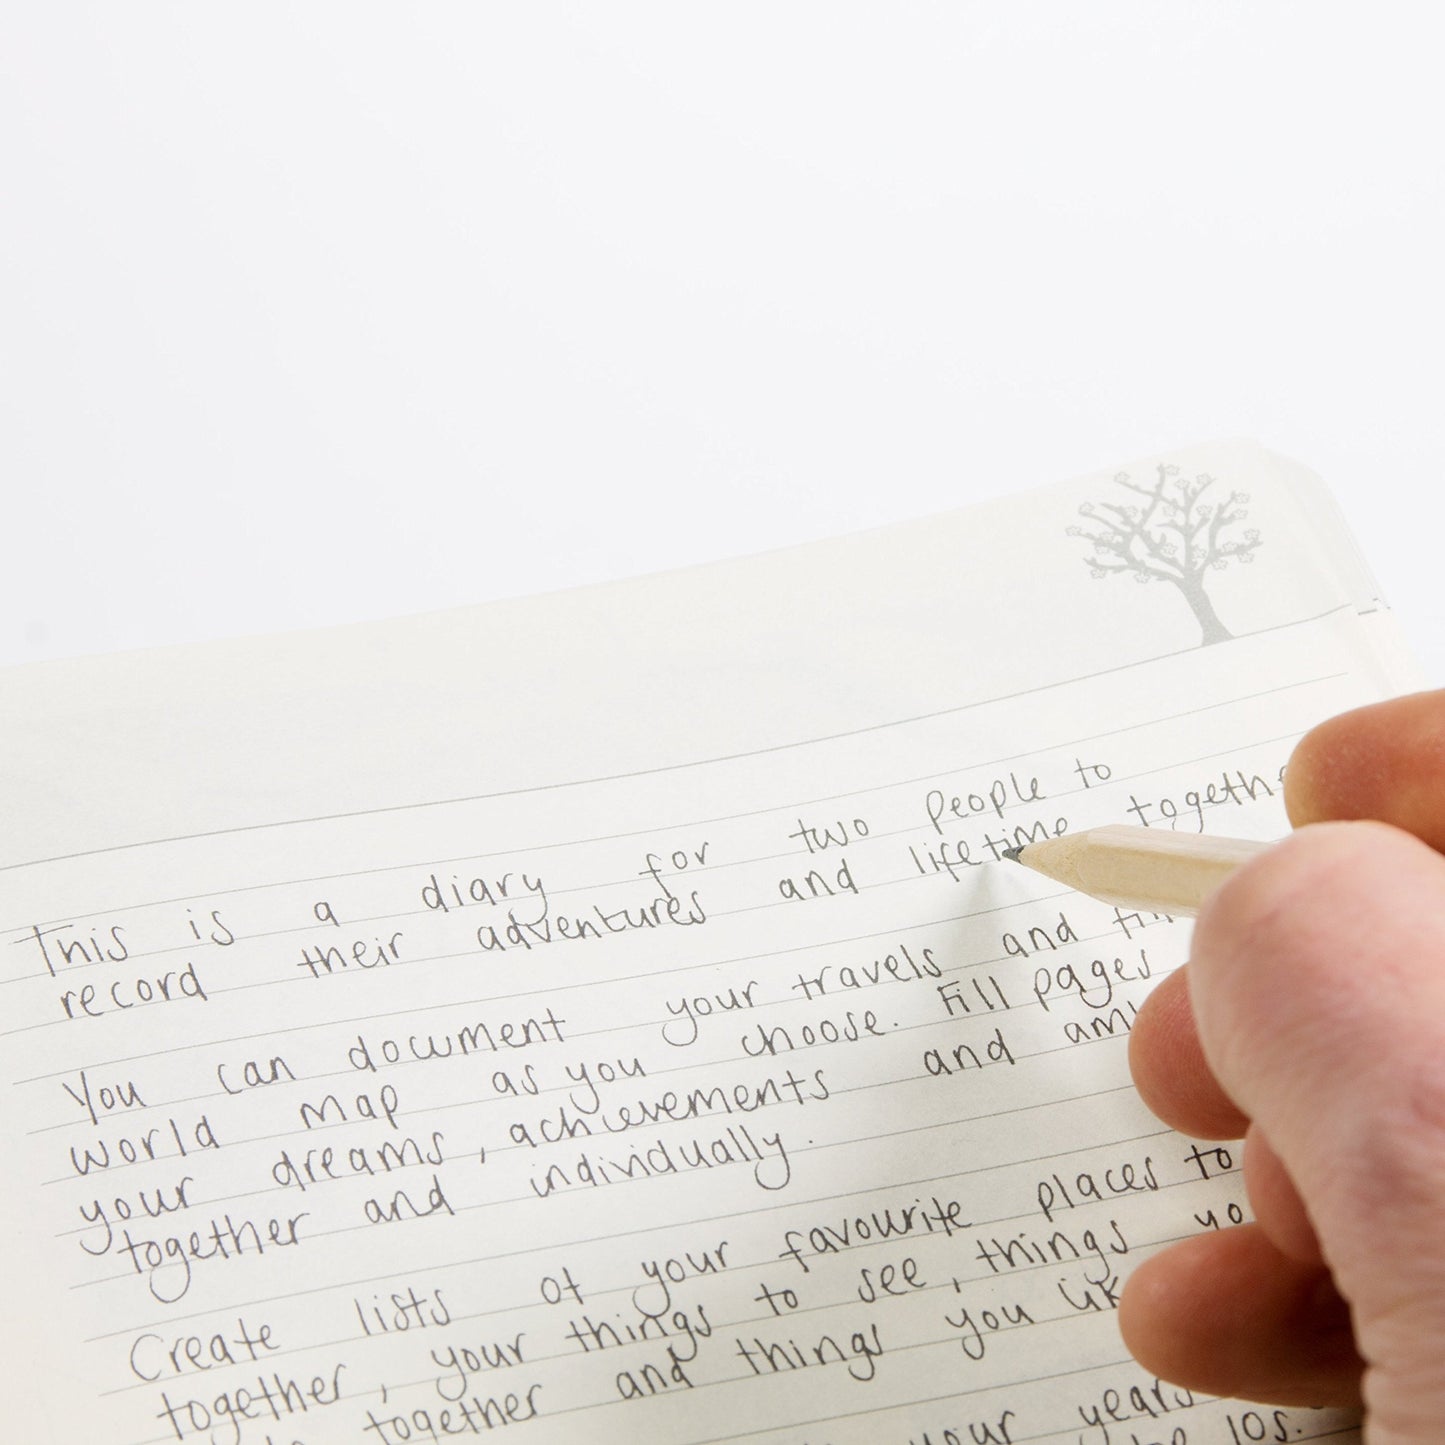 This is a diary for two people to
record their adventures and lifetime togethe
You can document your travels and
world map as you choose. Fill pages
your dreams, achievements and am
together and individually.
Create lists of your favourite places to
together, your things to see, things yo
together and things you
your years
10s.